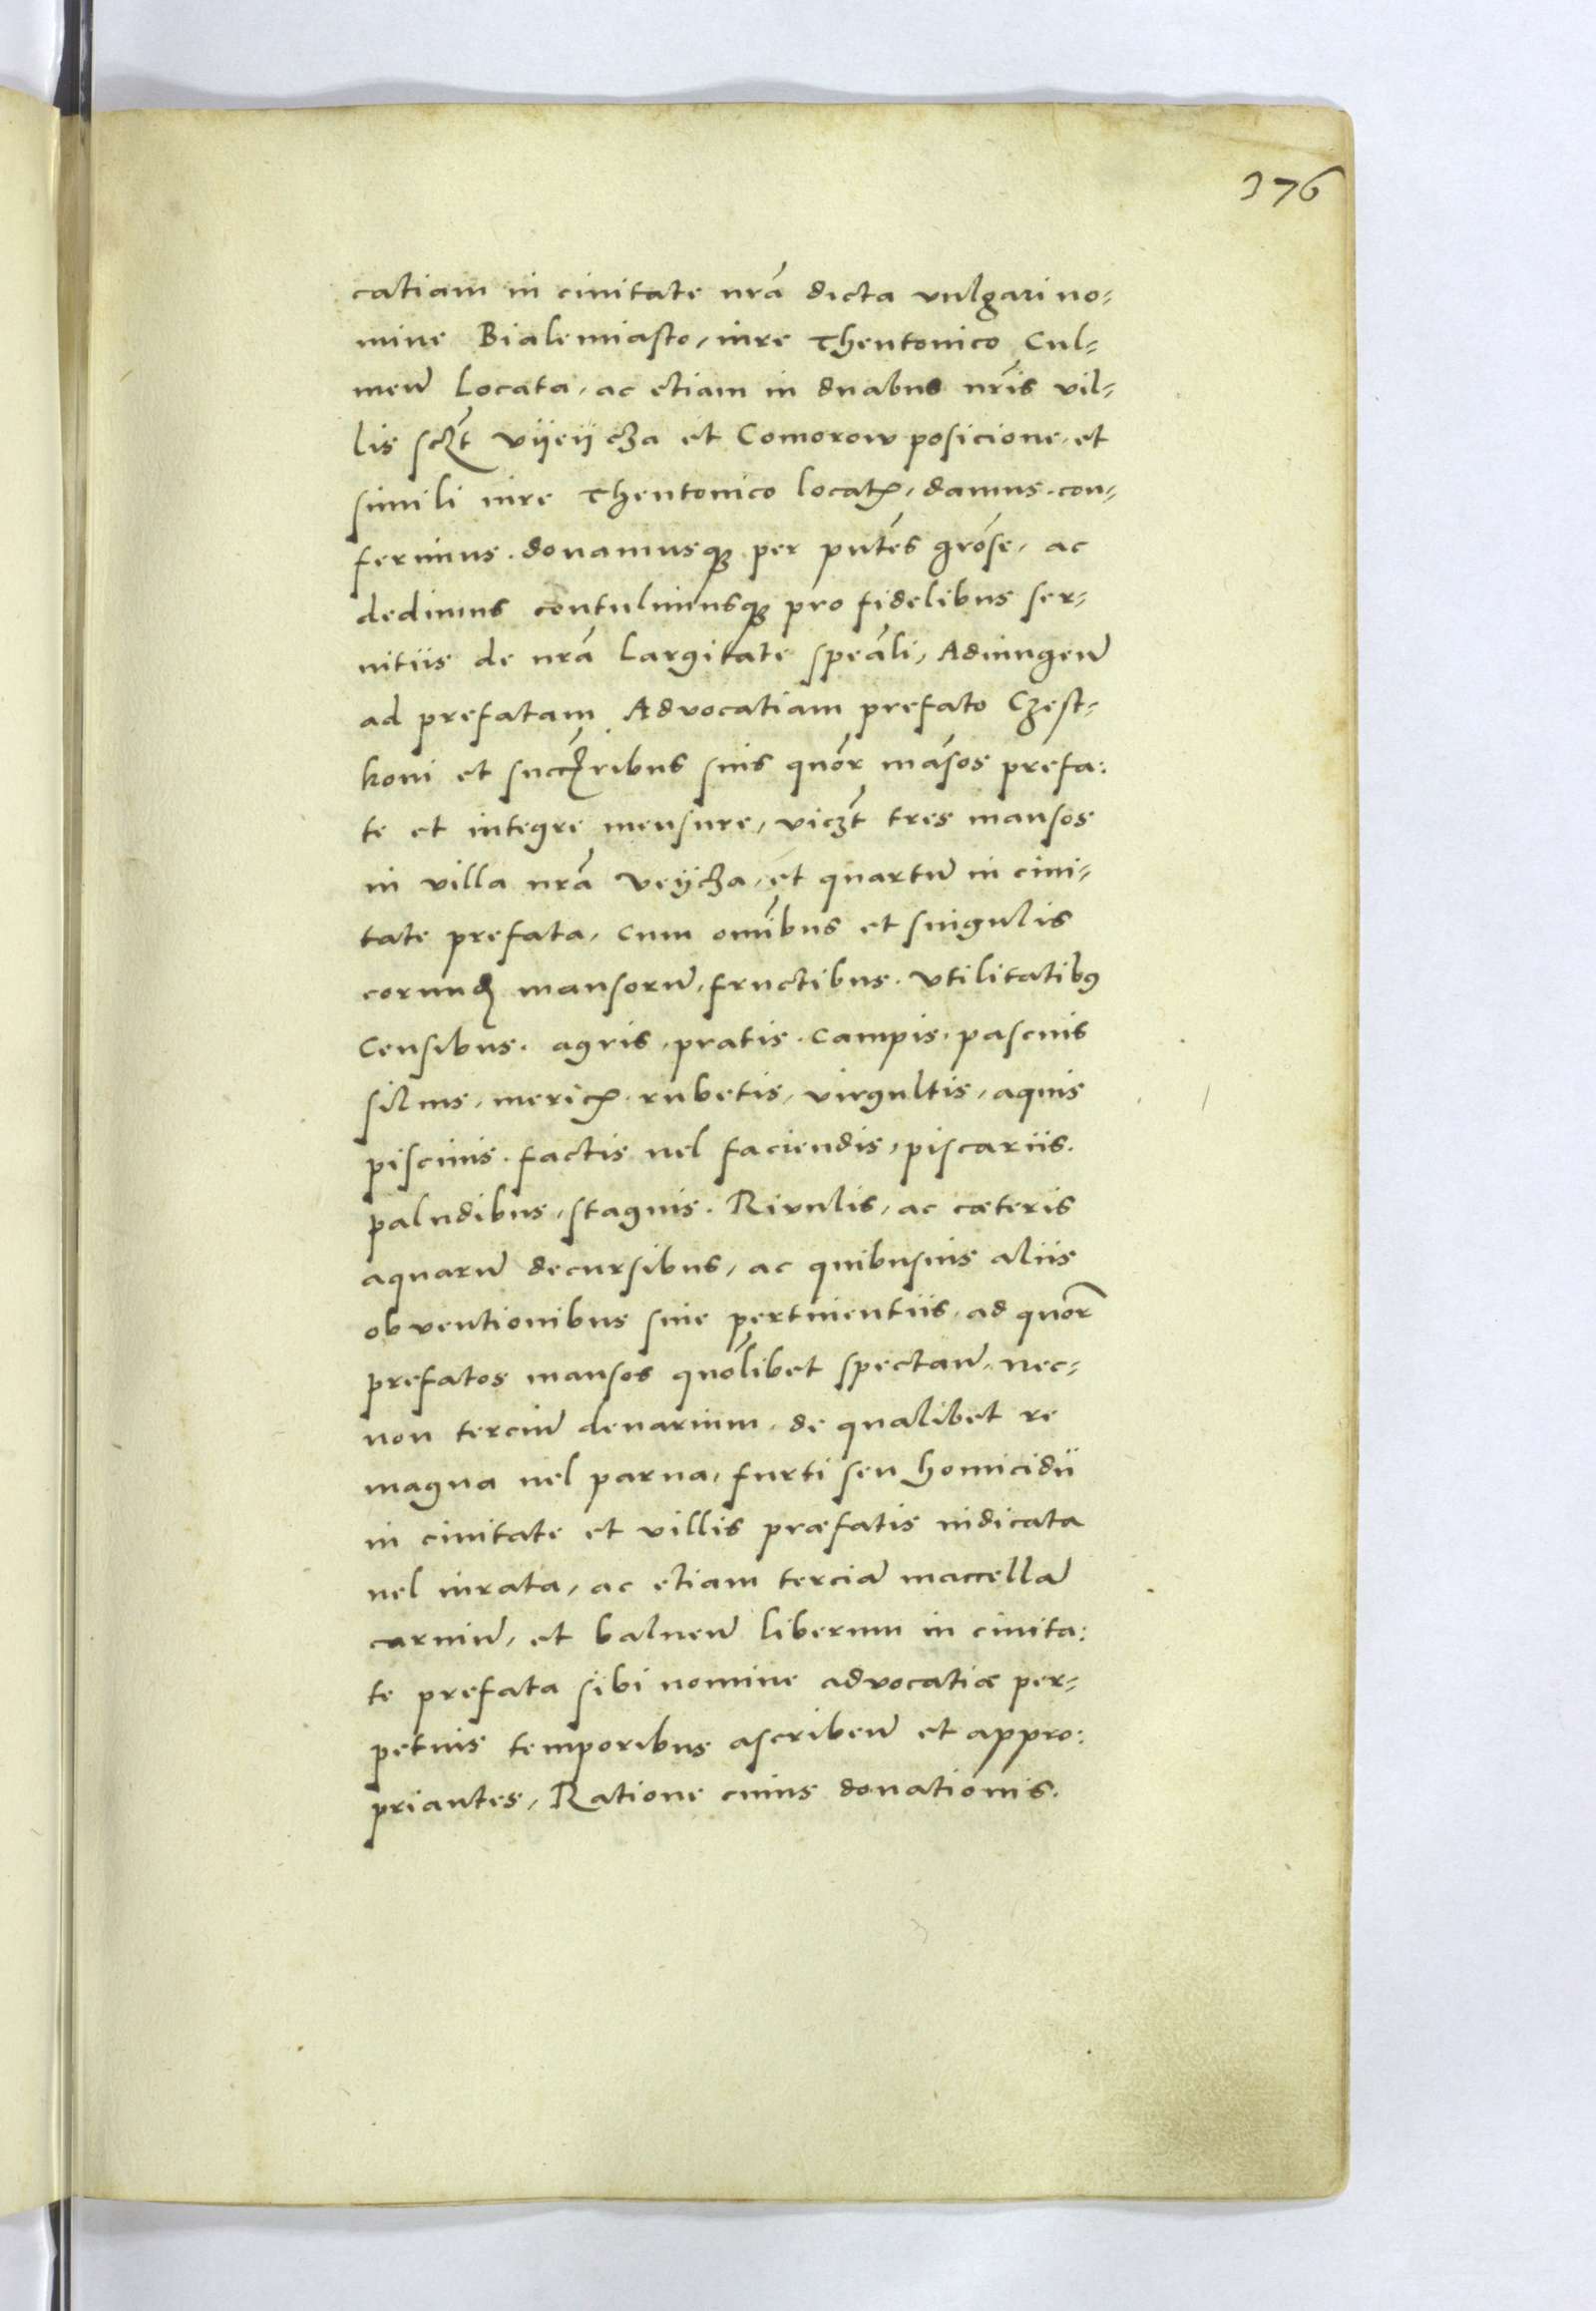 376
catiam in ciuitate nrā dicta vulgari no-
mine Bialemiasto, iure Theutonico Cul-
meñ Locata, ac etiam in duabus nrīs vil-
lis sczt̄ vijeijcza et Comorow posicione et
simili iure Theutonico locatꝭ, damus. con-
ferimus. donamusqꝫ per pn̄tes grōse, ac
dedimus contulimusqꝫ pro fidelibus ser-
uitiis de nrā Largitate speāli, Adiungeñ
ad prefatam Advocatiam prefato Czest-
koni et succꝭribus suis quōr māsos prefa:
te et integre mensure, viczt̄ tres mansos
in villa nrā Veijcza, et quartū in ciui-
tate prefata, cum omībus et singulis
eorundꝫ mansorū, fructibus. vtilitatibꝰ
Censibus. agris, pratis. Campis. pascuis
siluis, mericꝭ. rubetis, virgultis, aquis
piscinis. factis uel faciendis, piscariis.
paludibus, stagnis. Rivulis, ac cæteris
aquarū decursibus, ac quibusuis aliis
obventionibus siue pertinentiis, ad quōr
prefatos mansos quōlibet spectañ. nec-
non terciū denarium. de qualibet re
magna uel parua, furti seu homicidii
in ciuitate et villis præfatis iudicata
uel iurata, ac etiam terciā maccellā
carniū, et balneū liberum in ciuita:
te prefata sibi nomine advocatiæ per-
petuis temporibus ascribeñ et appro:
priantes, Ratione cuius donationis.